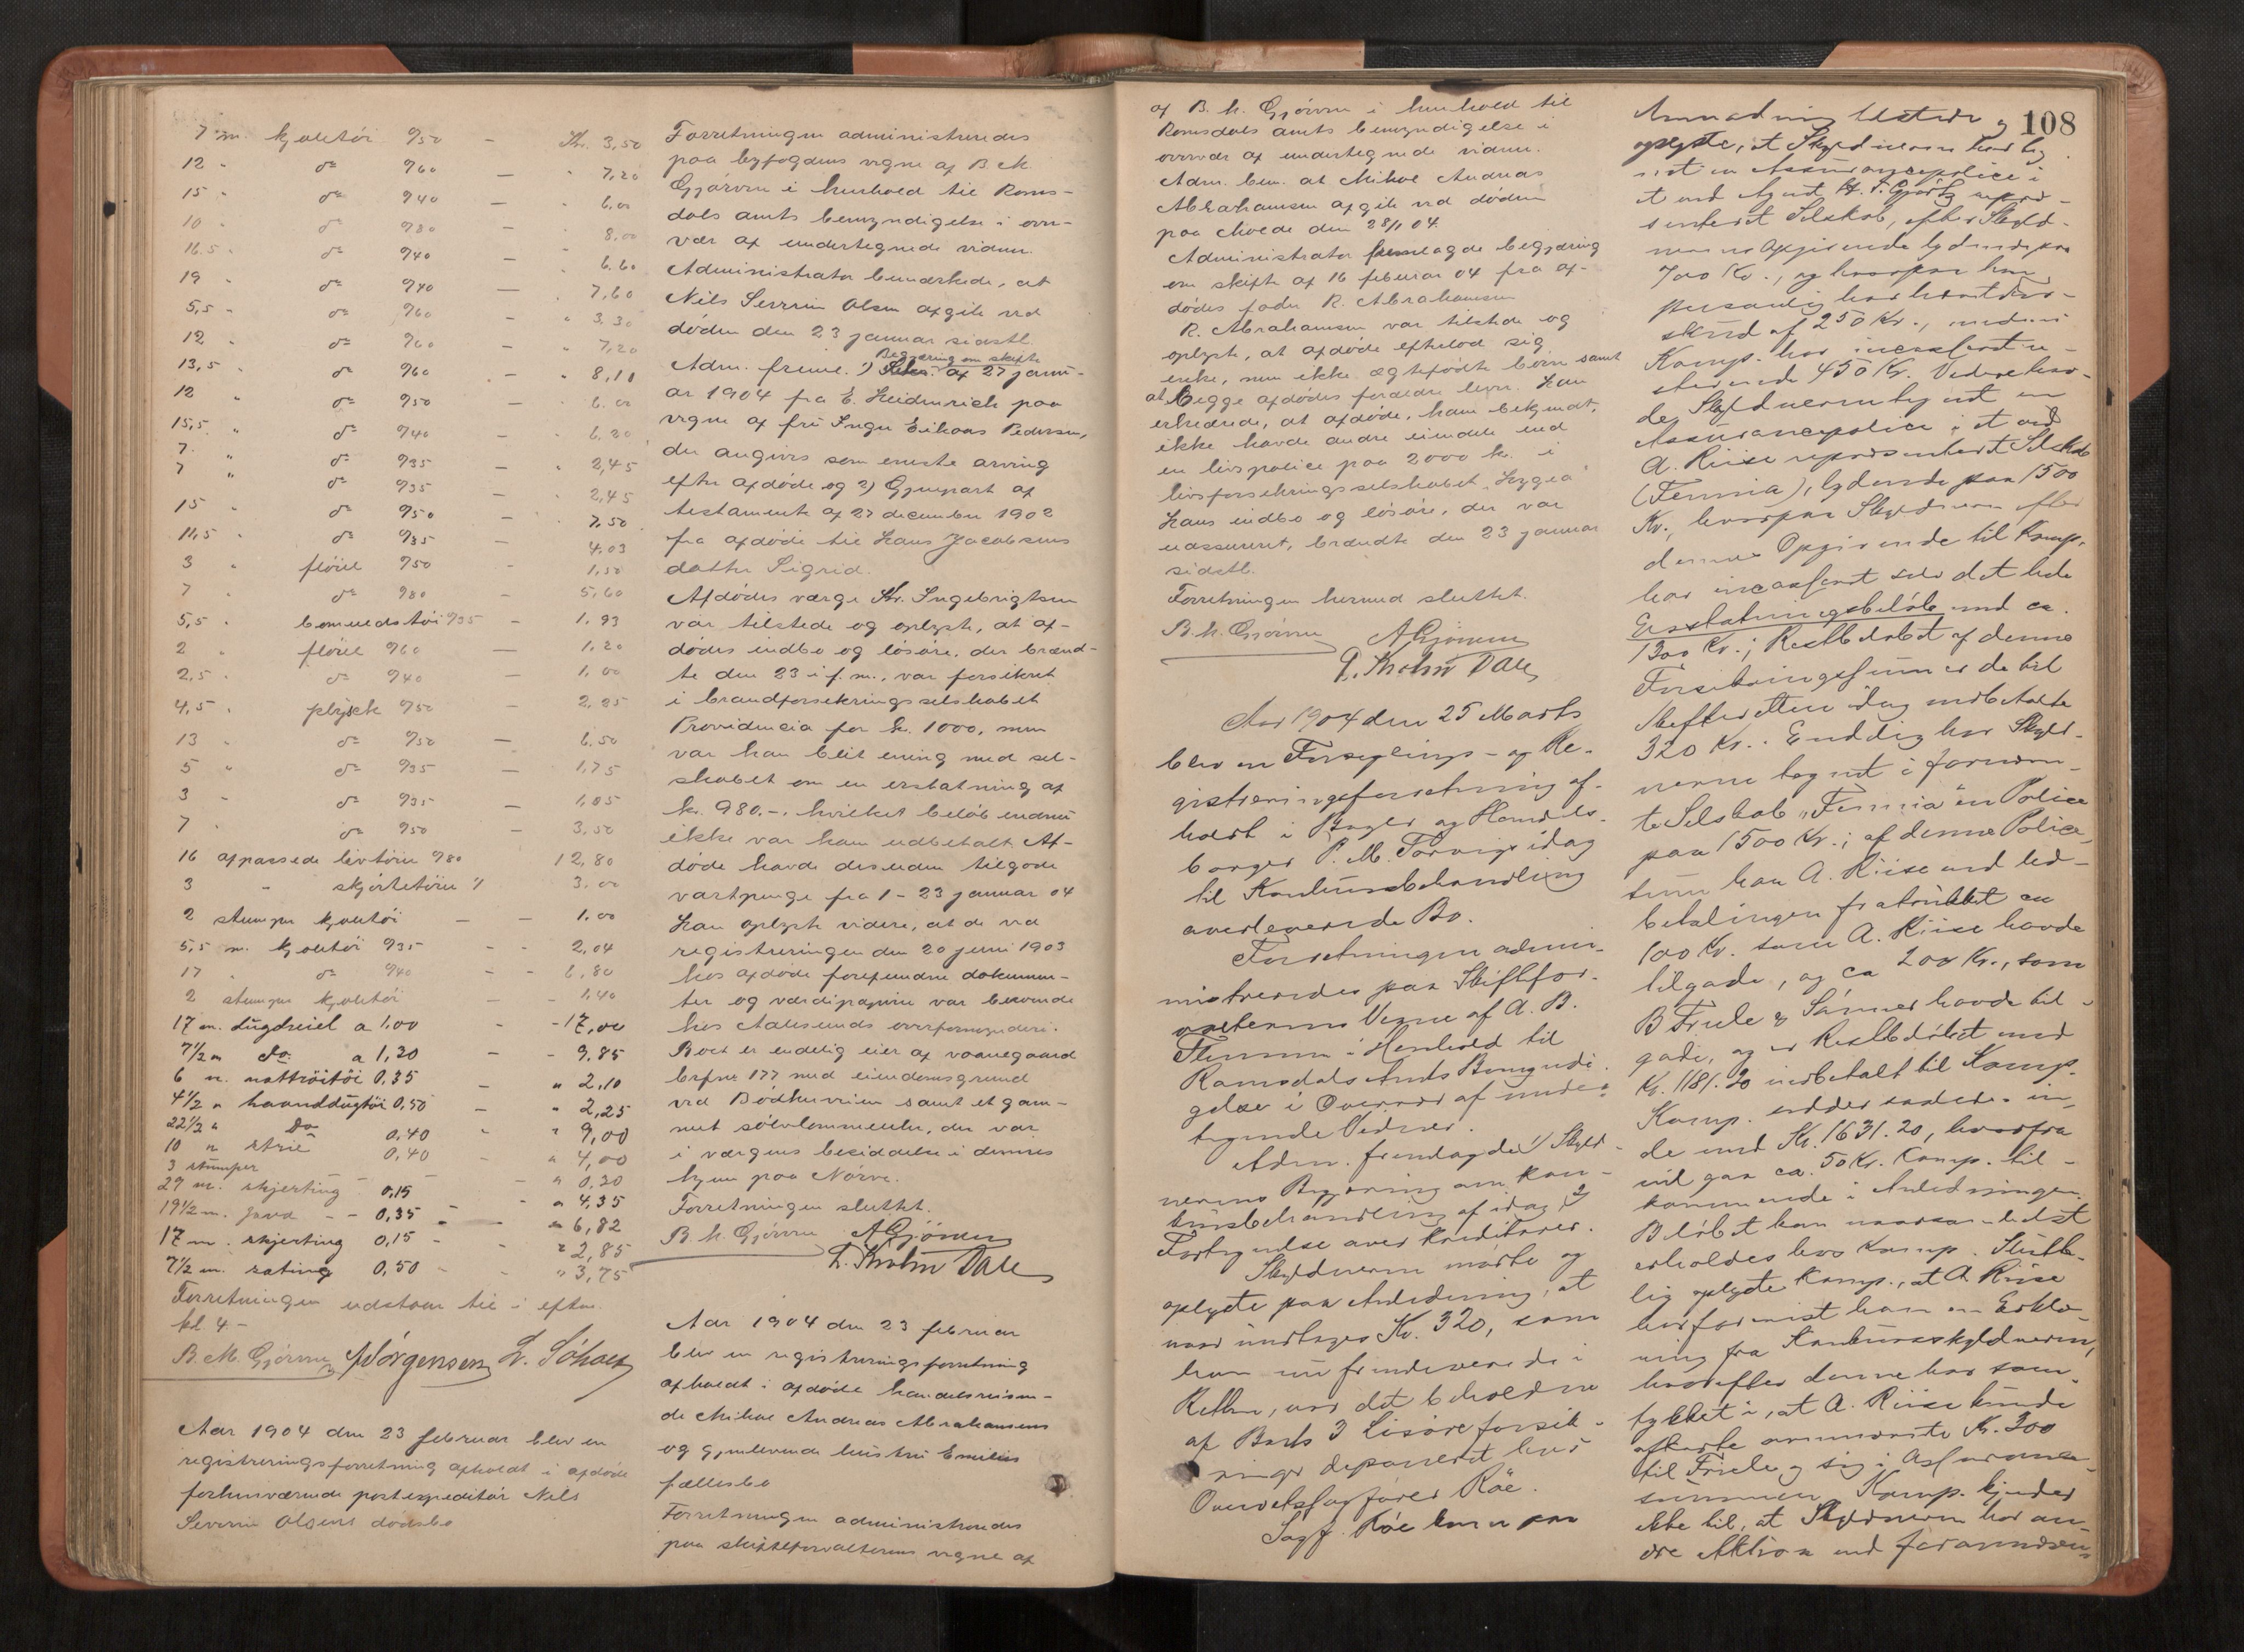 7 m. kjoletöi 0/50 — Kr. 3,50
12 " do 0/60 — " 7,20
15 " do 0/40 — " 6.00
10 " do 0/80 — " 8,00
16.5 " do 0/40 — " 6.60
19 " do 0/40 — " 7,60
5,5 " do 0/60 — " 3.30
12 " do 0/60 — " 7,20
13,5 " do 0/60 — " 8,10
12 " do 0/50 — " 6.00
15,5 " do 0/40 — " 6,20
7 " do 0/35 — " 2,45
7 " do 0/35 — " 2,45
15 " do 0/50 — 7,50
11,5 " do 0/35 — 4,03
3 " flöiel 0/50 — 1,50
7 " do 0/80 — 5,60
5,5 " bomuldstöi 0/35 — 1.93
2 " flöiel 0/60 — 1,20
2,5 " do 0/40 — 1,00
4,5 " plysch 0/50 — 2,25
13 " do 0/50 — 6.50
5 " do 0/35 — 1,75
3 " do 0/35 — 1,05
7 " do 0/50 — 3,50
16 afpassede livtöier 0/80 12,80
3 " skjörtetöier 1/ 3.00
2 stumper kjoletöi — 1.00
5,5 m. kjoletöi 0/35 - 2,04
17 " do 0/40 - 6,80
2 stumper kjoletöi — 1,40
17 m. dugdreiel a 1,00 - 17,00
7 1/2 m do. a 1,30 - 9,85
6 m. nattröitöi 0,35 - " 2,10
4 1/2 " haanddugtöi 0,50 - " 2,25
22 1/2 " Do 0,40 " " 9,00
10 " strie 0,40 " 4,00
3 stumper - " 0,20
29 m. skjerting 0,15 - " 4,35
19 1/2 m. " - - 0,35 - " 6,82
17 m. skjerting 0,15 - " 2,85
7 1/2 m. sating 0,50 - " 3,75
Forretningen udstaar til i efterm.
kl. 4.-
B. M. Gjörven Jörgensen L. Söholt
Aar 1904 den 23 februar blev en
registreringsforretning afholdt i afdöde
forhenværende postexpeditör Nils
Severin Olsens dödsbo
Forretningen administreredes
paa byfogdens vegne af B. M.
Gjörven i henhold til Roms-
dals amts bemyndigelse i over-
vær af undertegnede vidner.
Administrator bemærkede, at
Nils Severin Olsen afgik ved
döden den 23 januar sidstl.
Adm. freml. 1) Begjæring om skifte af 27 janu-
ar 1904 fra E. Heidenreich paa
vegne af fru Inga Eikaas Pedersen,
der angives som eneste arving
efter afdöde og 2) Gjenpart af
testamente af 27 december 1902
fra afdöde til Hans Jacobsens
datter Sigrid.
Afdödes værge Kr. Ingebrigtsen
var tilstede og oplyste, at af-
dödes indbo og lösöre, der brænd-
te den 23 i f. m., var forsikret
i brandforsikringsselskabet
Providencia for kr. 1000, men
var han blit enig med sel-
skabet om en erstatning af
kr. 980.-, hvilket belöb endnu
ikke var ham udbetalt. Af-
döde havde desuden tilgode
vartpenge fra 1 - 23 januar 04
Han oplyste videre, at de ved
registreringen den 20 juni 1903
hos afdöde forefundne dokumen-
ter og værdipapirer var beroende
hos Aalesunds overformynderi.
Boet er endelig eier af vaanegaard
brfnr 177 med eiendomsgrund
ved Bödkerveien samt et gam-
melt sölvlommeuhr, der var
i værgens besiddelse i dennes
hjem paa Nörve.
Forretningen sluttet.
B. M. Gjörven A Gjörven
P. Tholm Dale
Aar 1904 den 23 februar
blev en registreringsforretning
afholdt i afdöde handelsreisen-
de Mikal Andreas Abrahamsens
og gjenlevende hustru Emilies
fællesbo
Forretningen administreredes
paa skifteforvalterens vegne af
108
af B. M. Gjörven i henhold til
Romsdals amts bemyndigelse i
overvær af undertegnede vidner.
Adm. bem. at Mikal Andreas
Abrahamsen afgik ved döden
paa Molde den 28/1 04.
Administrator fremlagde begjæring
om skifte af 16 februar 04 fra af-
dödes fader R. Abrahamsen
R. Abrahamsen var tilstede og
oplyste, at afdöde efterlod sig
enke, men ikke ægtefödte börn samt
at begge afdödes forældre lever. Han
erklærede, at afdöde, ham bekjendt,
ikke havde andre eiendele end
en livspolice paa 2000 kr. i
livsforsikringsselskabet "Hygea"
Hans indbo og lösöre, der var
uassureret, brændte den 23 januar
sidstl.
Forretningen hermed sluttet.
B. M. Gjörven A Gjörven
P. Tholm Dale
Aar 1904 den 25 Marts
blev en Forseglings- og Re-
gistreringsforretning af-
holdt i Bager og Handels-
borger P. M. Torvigs idag
til Konkursbehandling
overleverede Bo.
Forretningen admini-
streredes paa Skiftefor-
valterens Vegne af A. B.
Flemmen i Henhold til
Romsdals Amts Bemyndi-
gelse i Overvær af under-
tegnede Vidner.
Adm. fremlagde 1) Skyld-
nerens Begjæring om Kon-
kursbehandling af idag 2)
Fortegnelse over Kreditorer.
Skyldneren mödte og
oplyste paa Anledning, at
naar undtages Kr. 320, som
han nu fremleverede i
Retten, var det beholdne
af Boets 3 Lösöreforsik-
ringer deponeret hos
Overretssagförer Röe.
Sagf. Röe kom paa
Anmodning tilstede og
oplyste, at Skyldneren har teg-
net en Assurancepolice i
et ved Agent H. F. Gjörtz repræ-
senteret Selskab, efter Skyld-
nerens Opgivende lydende paa
700 Kr., og hvorpaa han
personlig har hævet For-
skud af 250 Kr., medens
Komp. har incasseret re-
sterende 450 Kr. Videre hav-
de Skyldneren tegnet en
Assurancepolice i et ved
A. Riise repræsenteret Selskab
(Fennia), lydende paa 1500
Kr., hvorpaa Skyldneren efter
dennes Opgivende til Komp.
har incasseret selv det hele
Erstatningsbelöb med ca.
1300 Kr.; Restbelöbet af denne
Forsikringssum er de til
Skifteretten idag indbetalte
320 Kr. Endelig har Skyld-
neren tegnet i fornævn-
te Selskab "Fennia" en Police
paa 1500 Kr.; af denne Police-
sum har A. Riise ved Ud-
betalingen fratrukket ca
100 Kr. som A. Riise havde
tilgode, og ca 200 Kr., som
B Friele & Sönner havde til-
gode, og er Restbelöbet med
Kr. 1181.20 indbetalt til Komp.
Komp. sidder saaledes in-
de med Kr. 1631.20, hvorfra
vil gaa ca. 50 Kr. Komp. til-
kommende i Anledningen.
Belöbet kan naarsomhelst
erholdes hos Komp. Slutte-
lig oplyste Komp., at A. Riise
har forevist ham en Erklæ-
ring fra Konkursskyldneren,
hvorefter denne har sam-
tykket i, at A. Riise kunde
afkorte omnævnte Kr. 300
til Friele og sig i Assurance-
summen. Komp. kjender
ikke til, at Skyldneren har an-
dre Aktiva end forannævn